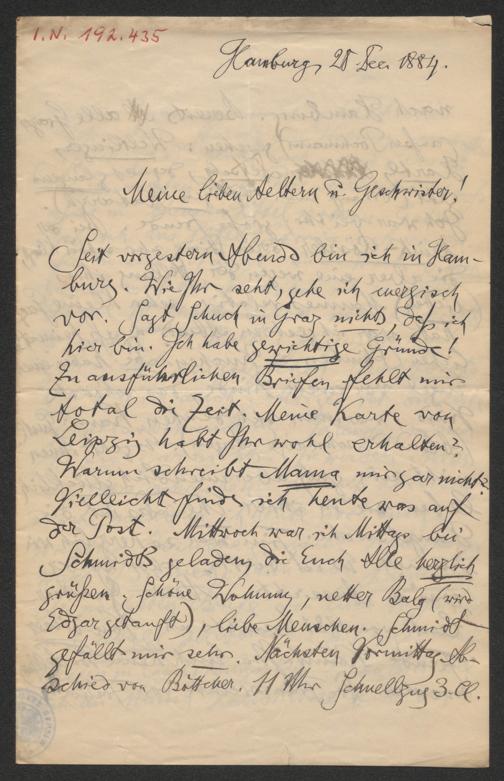 I.N. 192.435
Hamburg, 20 Dec. 1884.
Meine lieben Aeltern u. Geschwister!
Seit vorgestern Abend bin ich in Ham-
burg. Wie Ihr seht, gehe ich energisch
vor. Sagt Schuch in Graz nicht, daß ich
hier bin. Ich habe gewichtige Gründe!
Zu ausführlichen Briefen fehlt mir
total die Zeit. Meine Karte von
Leipzig habt Ihr wohl erhalten?
Warum schreibt Mama mir gar nicht?
Vielleicht finde ich heute was auf
der Post. Mittwoch war ich Mittags bei
Schmidts geladen, die Euch Alle herzlich
grüßen. Schöne Wohnung, netter Balg (wird
Edgar getauft), liebe Menschen. Schmidt
gefällt mir sehr. Nächsten Vormittag Ab-
schied von Böttcher. 11 Uhr Schnellzug 3. Cl.